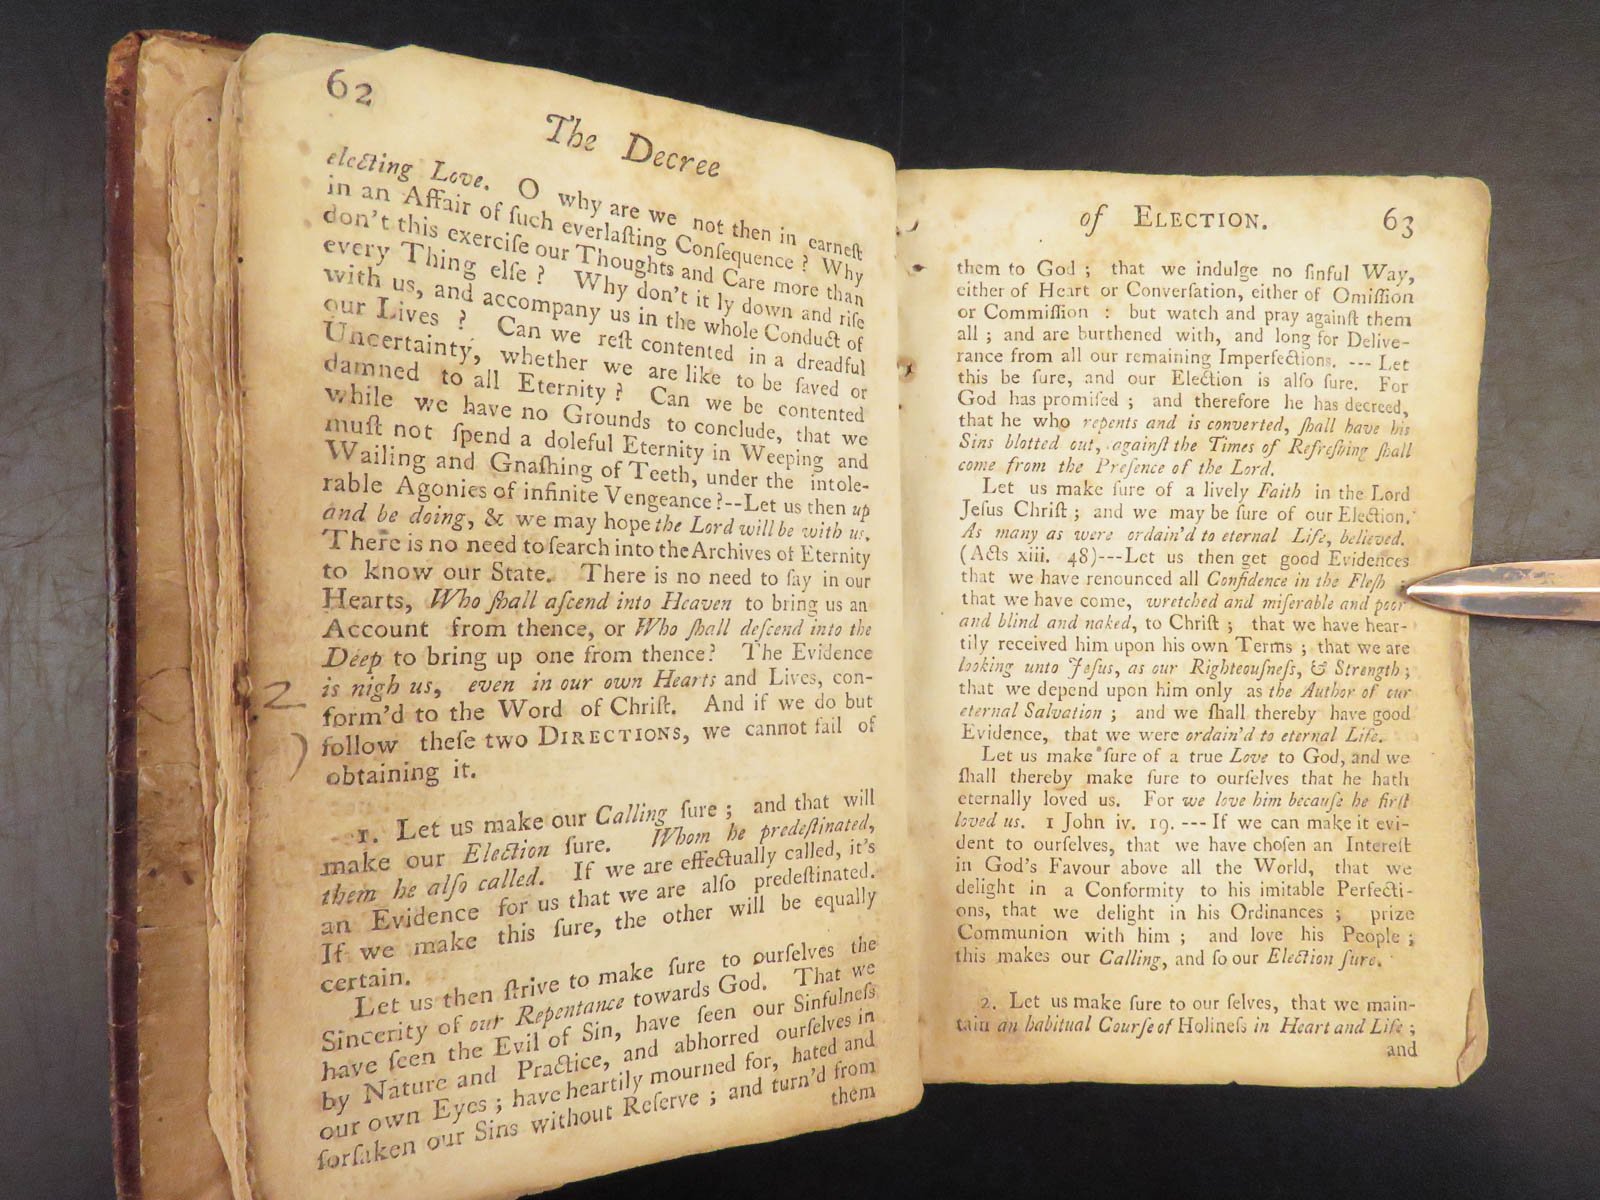 62
The Decree
electing Love. O why are we not then in earneſt
in an Affair of ſuch everlaſting Conſequence? Why
don't this exerciſe our Thoughts and Care more than
every Thing elſe? Why don't it ly down and riſe
with us, and accompany us in the whole Conduct of
our Lives? Can we reſt contented in a dreadful
Uncertainty, whether we are like to be ſaved or
damned to all Eternity? Can we be contented
while we have no Grounds to conclude, that we
muſt not ſpend a doleful Eternity in Weeping and
Wailing and Gnaſhing of Teeth, under the intole-
rable Agonies of infinite Vengeance?--Let us then up
and be doing, & we may hope the Lord will be with us.
There is no need to ſearch into the Archives of Eternity
to know our State. There is no need to ſay in our
Hearts, Who ſhall aſcend into Heaven to bring us an
Account from thence, or Who ſhall deſcend into the
Deep to bring up one from thence? The Evidence
is nigh us, even in our own Hearts and Lives, con-
2 form'd to the Word of Chriſt. And if we do but
) follow theſe two DIRECTIONS, we cannot fail of
obtaining it.
1. Let us make our Calling ſure; and that will
make our Election ſure. Whom he predeſtinated,
them he alſo called. If we are effectually called, it's
an Evidence for us that we are alſo predeſtinated.
If we make this ſure, the other will be equally
certain.
Let us then ſtrive to make ſure to ourſelves the
Sincerity of our Repentance towards God. That we
have ſeen the Evil of Sin, have ſeen our Sinfulneſs
by Nature and Practice, and abhorred ourſelves in
our own Eyes; have heartily mourned for, hated and
forſaken our Sins without Reſerve; and turn'd from
them
of ELECTION. 63
them to God; that we indulge no ſinful Way,
either of Heart or Converſation, either of Omiſſion
or Commiſſion: but watch and pray againſt them
all; and are burthened with, and long for Delive-
rance from all our remaining Imperfections. --- Let
this be ſure, and our Election is alſo ſure. For
God has promiſed; and therefore he has decreed,
that he who repents and is converted, ſhall have his
Sins blotted out, againſt the Times of Refreſhing ſhall
come from the Preſence of the Lord.
Let us make ſure of a lively Faith in the Lord
Jeſus Chriſt; and we may be ſure of our Election.
As many as were ordain'd to eternal Life, believed.
(Acts xiii. 48)---Let us then get good Evidences
that we have renounced all Confidence in the Fleſh;
that we have come, wretched and miſerable and poor
and blind and naked, to Chriſt; that we have hear-
tily received him upon his own Terms; that we are
looking unto Jeſus, as our Righteouſneſs, & Strength;
that we depend upon him only as the Author of our
eternal Salvation; and we ſhall thereby have good
Evidence, that we were ordain'd to eternal Life.
Let us make ſure of a true Love to God, and we
ſhall thereby make ſure to ourſelves that he hath
eternally loved us. For we love him becauſe he firſt
loved us. 1 John iv. 19. --- If we can make it evi-
dent to ourſelves, that we have choſen an Intereſt
in God's Favour above all the World, that we
delight in a Conformity to his imitable Perfecti-
ons, that we delight in his Ordinances; prize
Communion with him; and love his People;
this makes our Calling, and ſo our Election ſure.
2. Let us make ſure to our ſelves, that we main-
tain an habitual Courſe of Holineſs in Heart and Life;
and